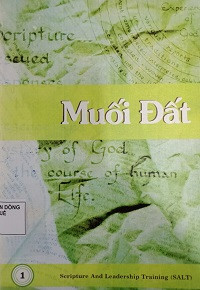 cripture
Muối Đất
of God
the course of human
Life.
ÂN DÒNG
UỆ
1
Scripture And Leadership Training (SALT)